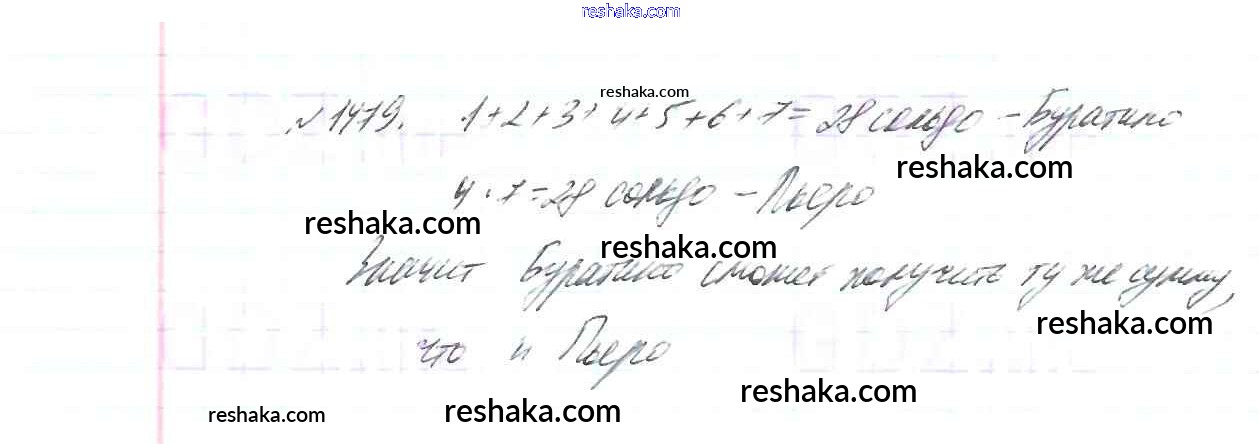 reshaka.com
reshaka.com
№ 1479. 1+2+3+4+5+6+7=28 сольдо – Буратино
reshaka.com
4·7=28 сольдо – Пьеро
reshaka.com
reshaka.com
Значит Буратино сможет получить ту же сумму,
reshaka.com
что и Пьеро
reshaka.com
reshaka.com
reshaka.com